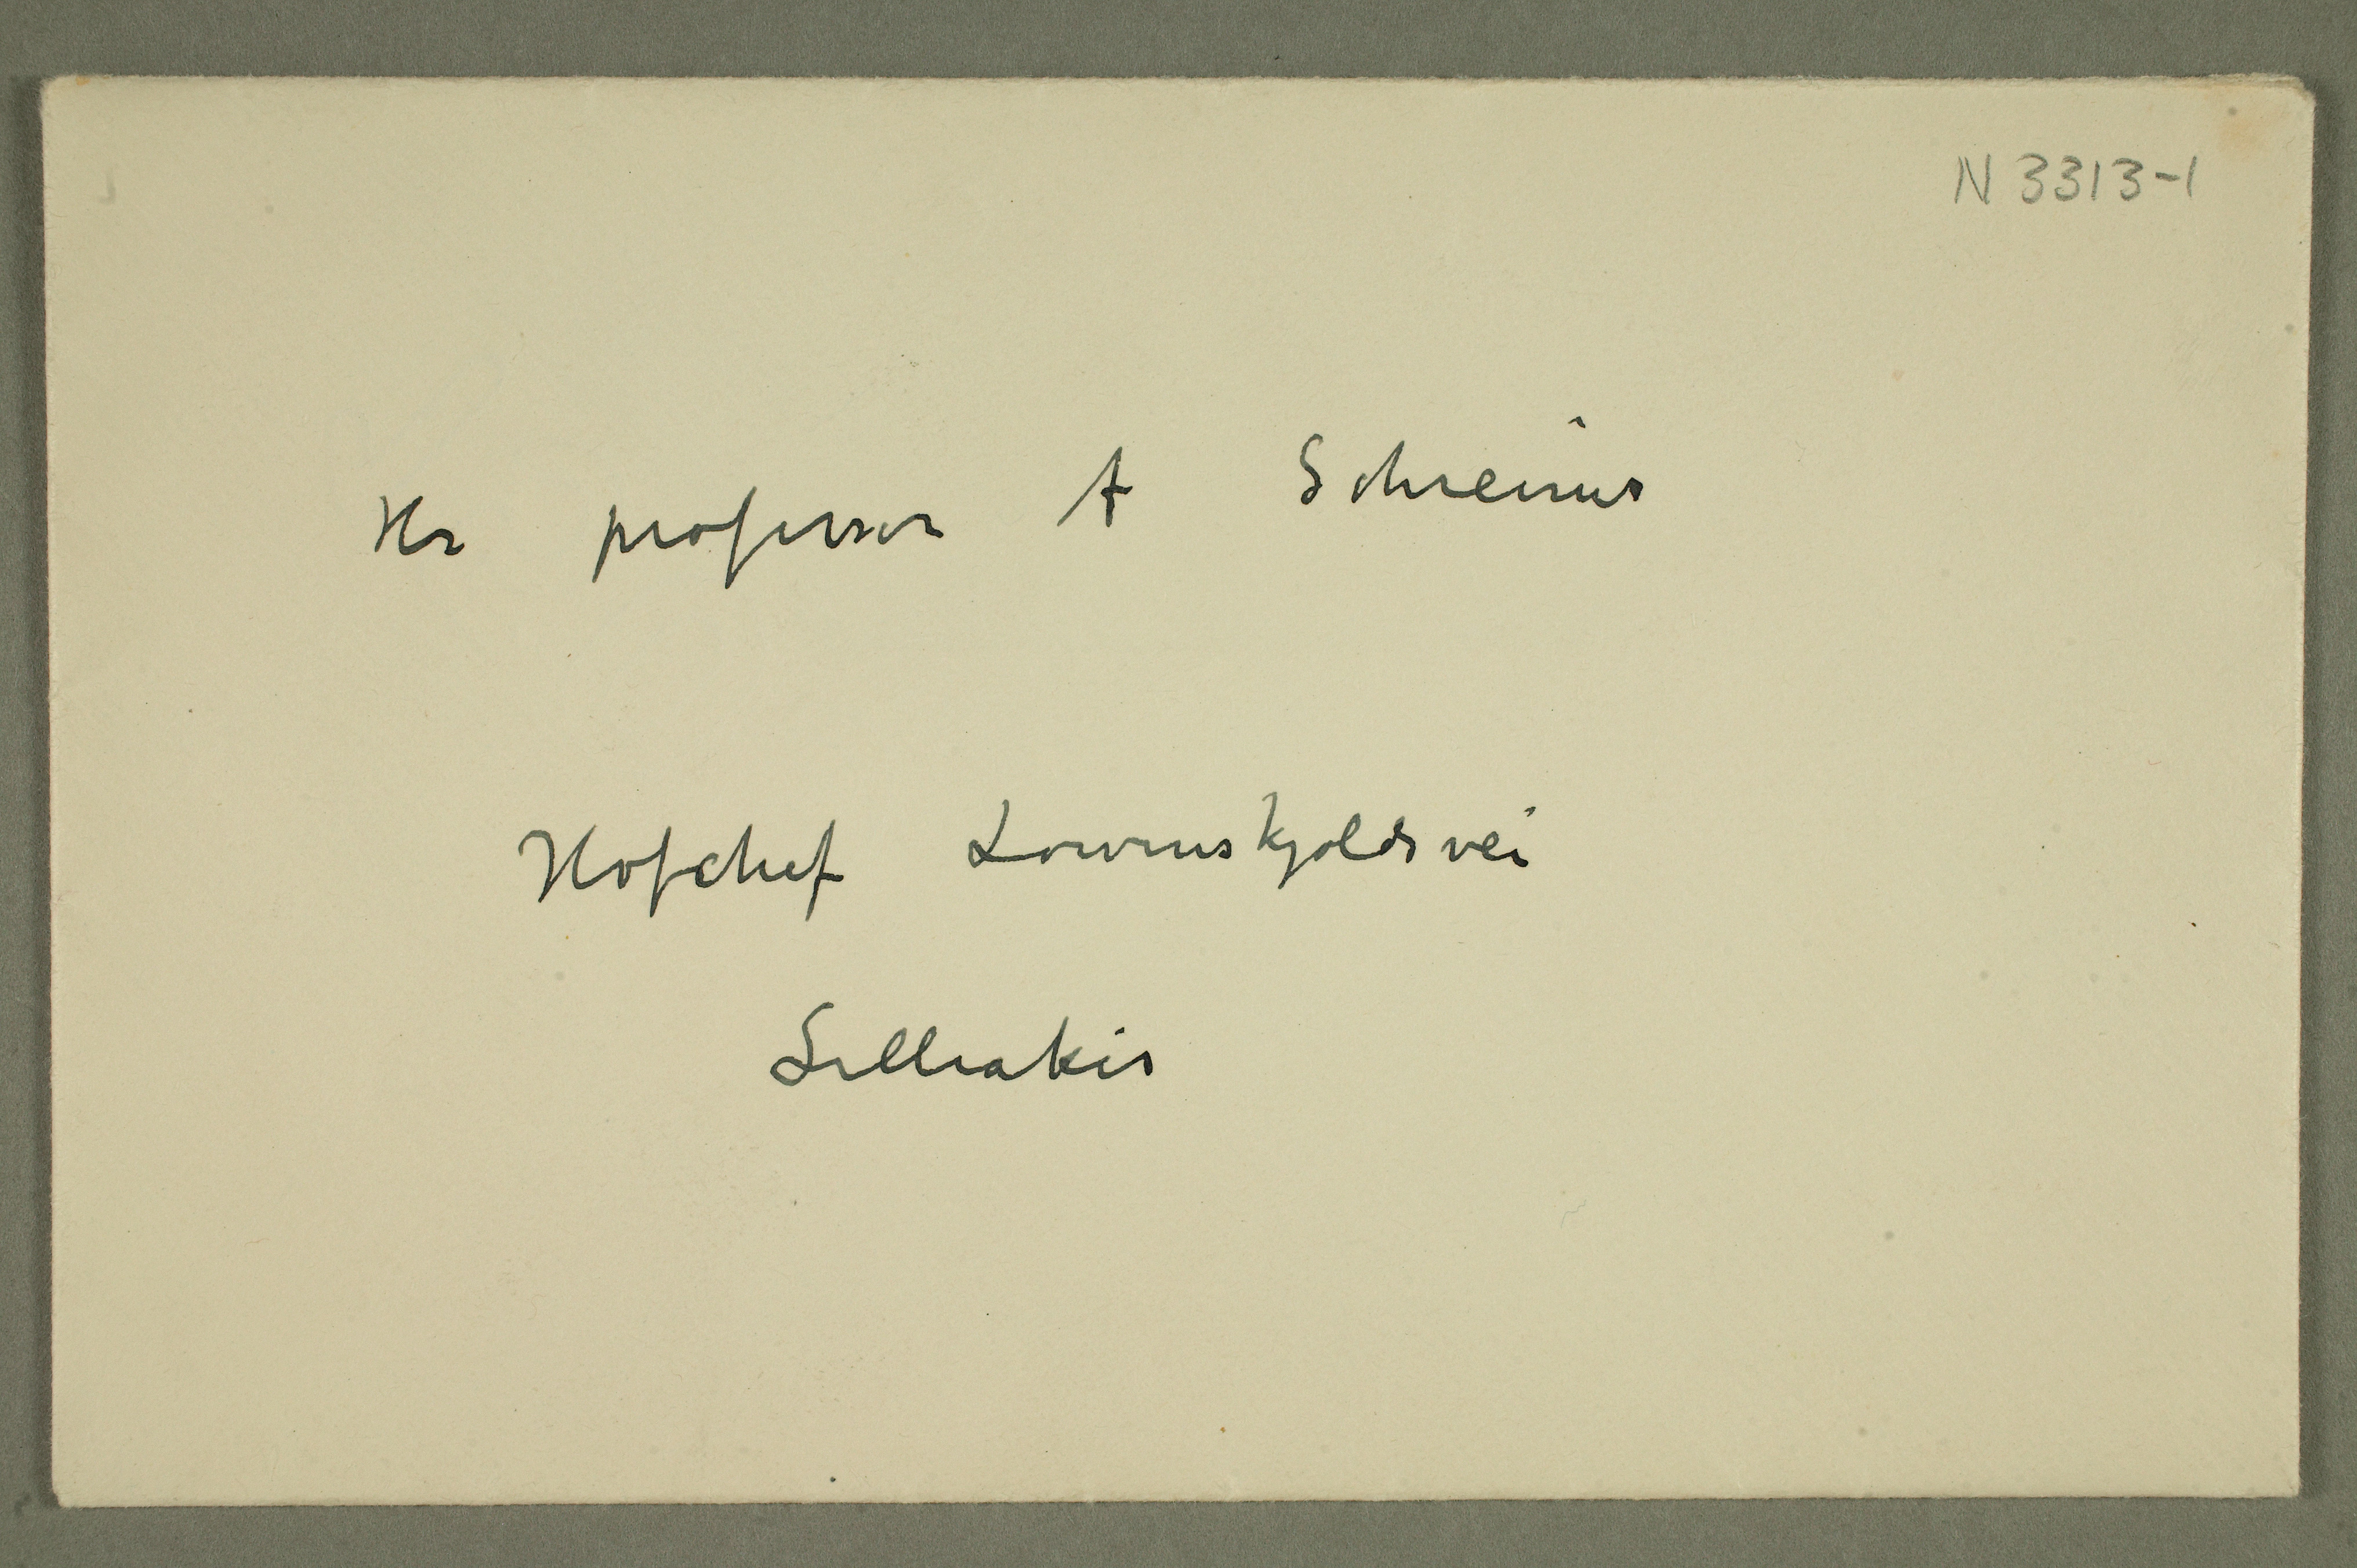 N 3313-1
Hr professor A Schreiner
Hofchef Lövenskjoldsvei
Lilleaker